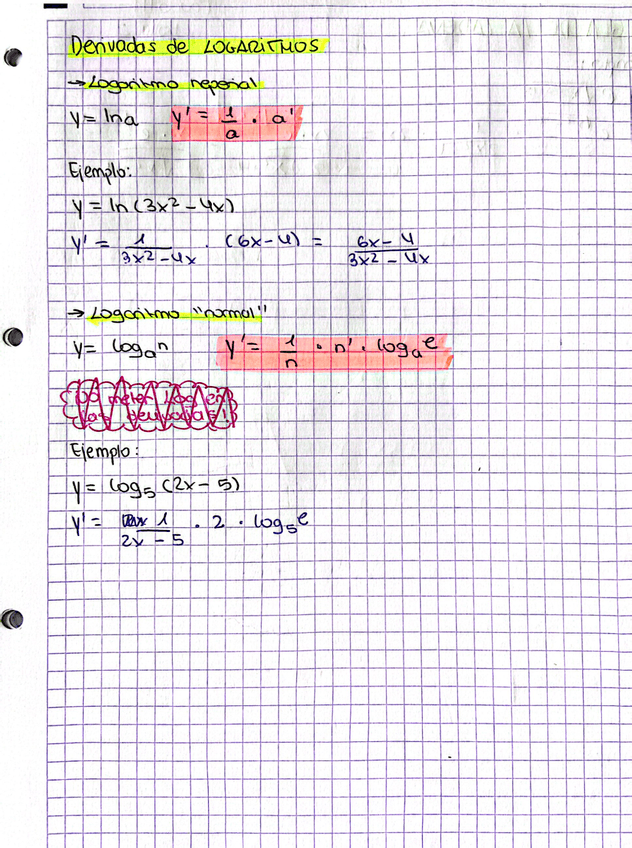 Derivadas de LOGARITMOS
→ Logaritmo neperial
y = ln a   y' = 1/a · a'
Ejemplo:
y = ln (3x² - 4x)
y' = 1/(3x² - 4x) · (6x - 4) = (6x - 4)/(3x² - 4x)
→ Logaritmo "normal"
y = logₐ n   y' = 1/n · n' · logₐ e
No meter log en
las derivadas!
Ejemplo:
y = log₅ (2x - 5)
y' = 1/(2x - 5) · 2 · log₅ e